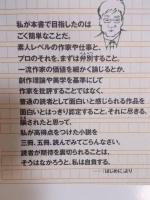 私が本書で目指したのは
ごく簡単なことだ。
素人レベルの作家や仕事と、
プロのそれを、まずは分別すること。
一流作家の価値を細かく論じるとか、
創作理論や美学を基準にして
作家を批評することではなく、
普通の読者として面白いと感じられる作品を
面白いとはっきり認定すること、それに尽きる。
騙されたと思って、
私が高得点をつけた小説を
三冊、五冊、読んでみてごらんなさい。
読者が期待を裏切られることは、
そうはなかろうと、私は自負する。
「はじめに」より